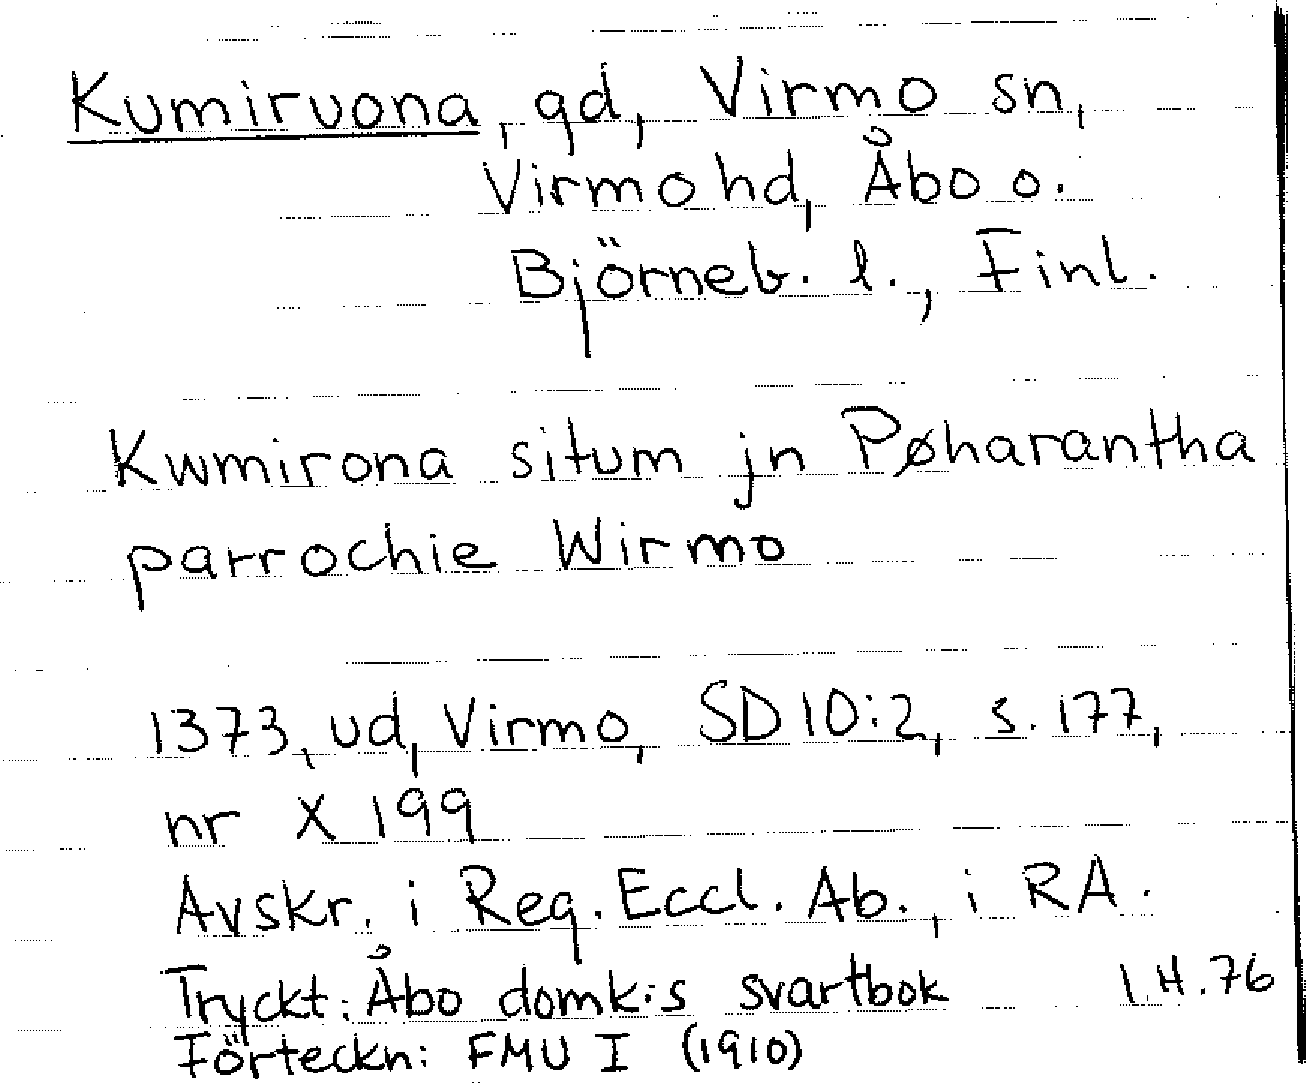 Kumiruona, gd, Virmo sn,
Virmo hd, Åbo o.
Björneb. l., Finl.
Kwmirona situm jn Pøharantha
parrochie Wirmo
1373, ud, Virmo, SD 10:2, s. 177,
nr X 199
Avskr. i Reg. Eccl. Ab., i RA.
Tryckt: Åbo domk:s svartbok I.H.76
Förteckn: FMU I (1910)